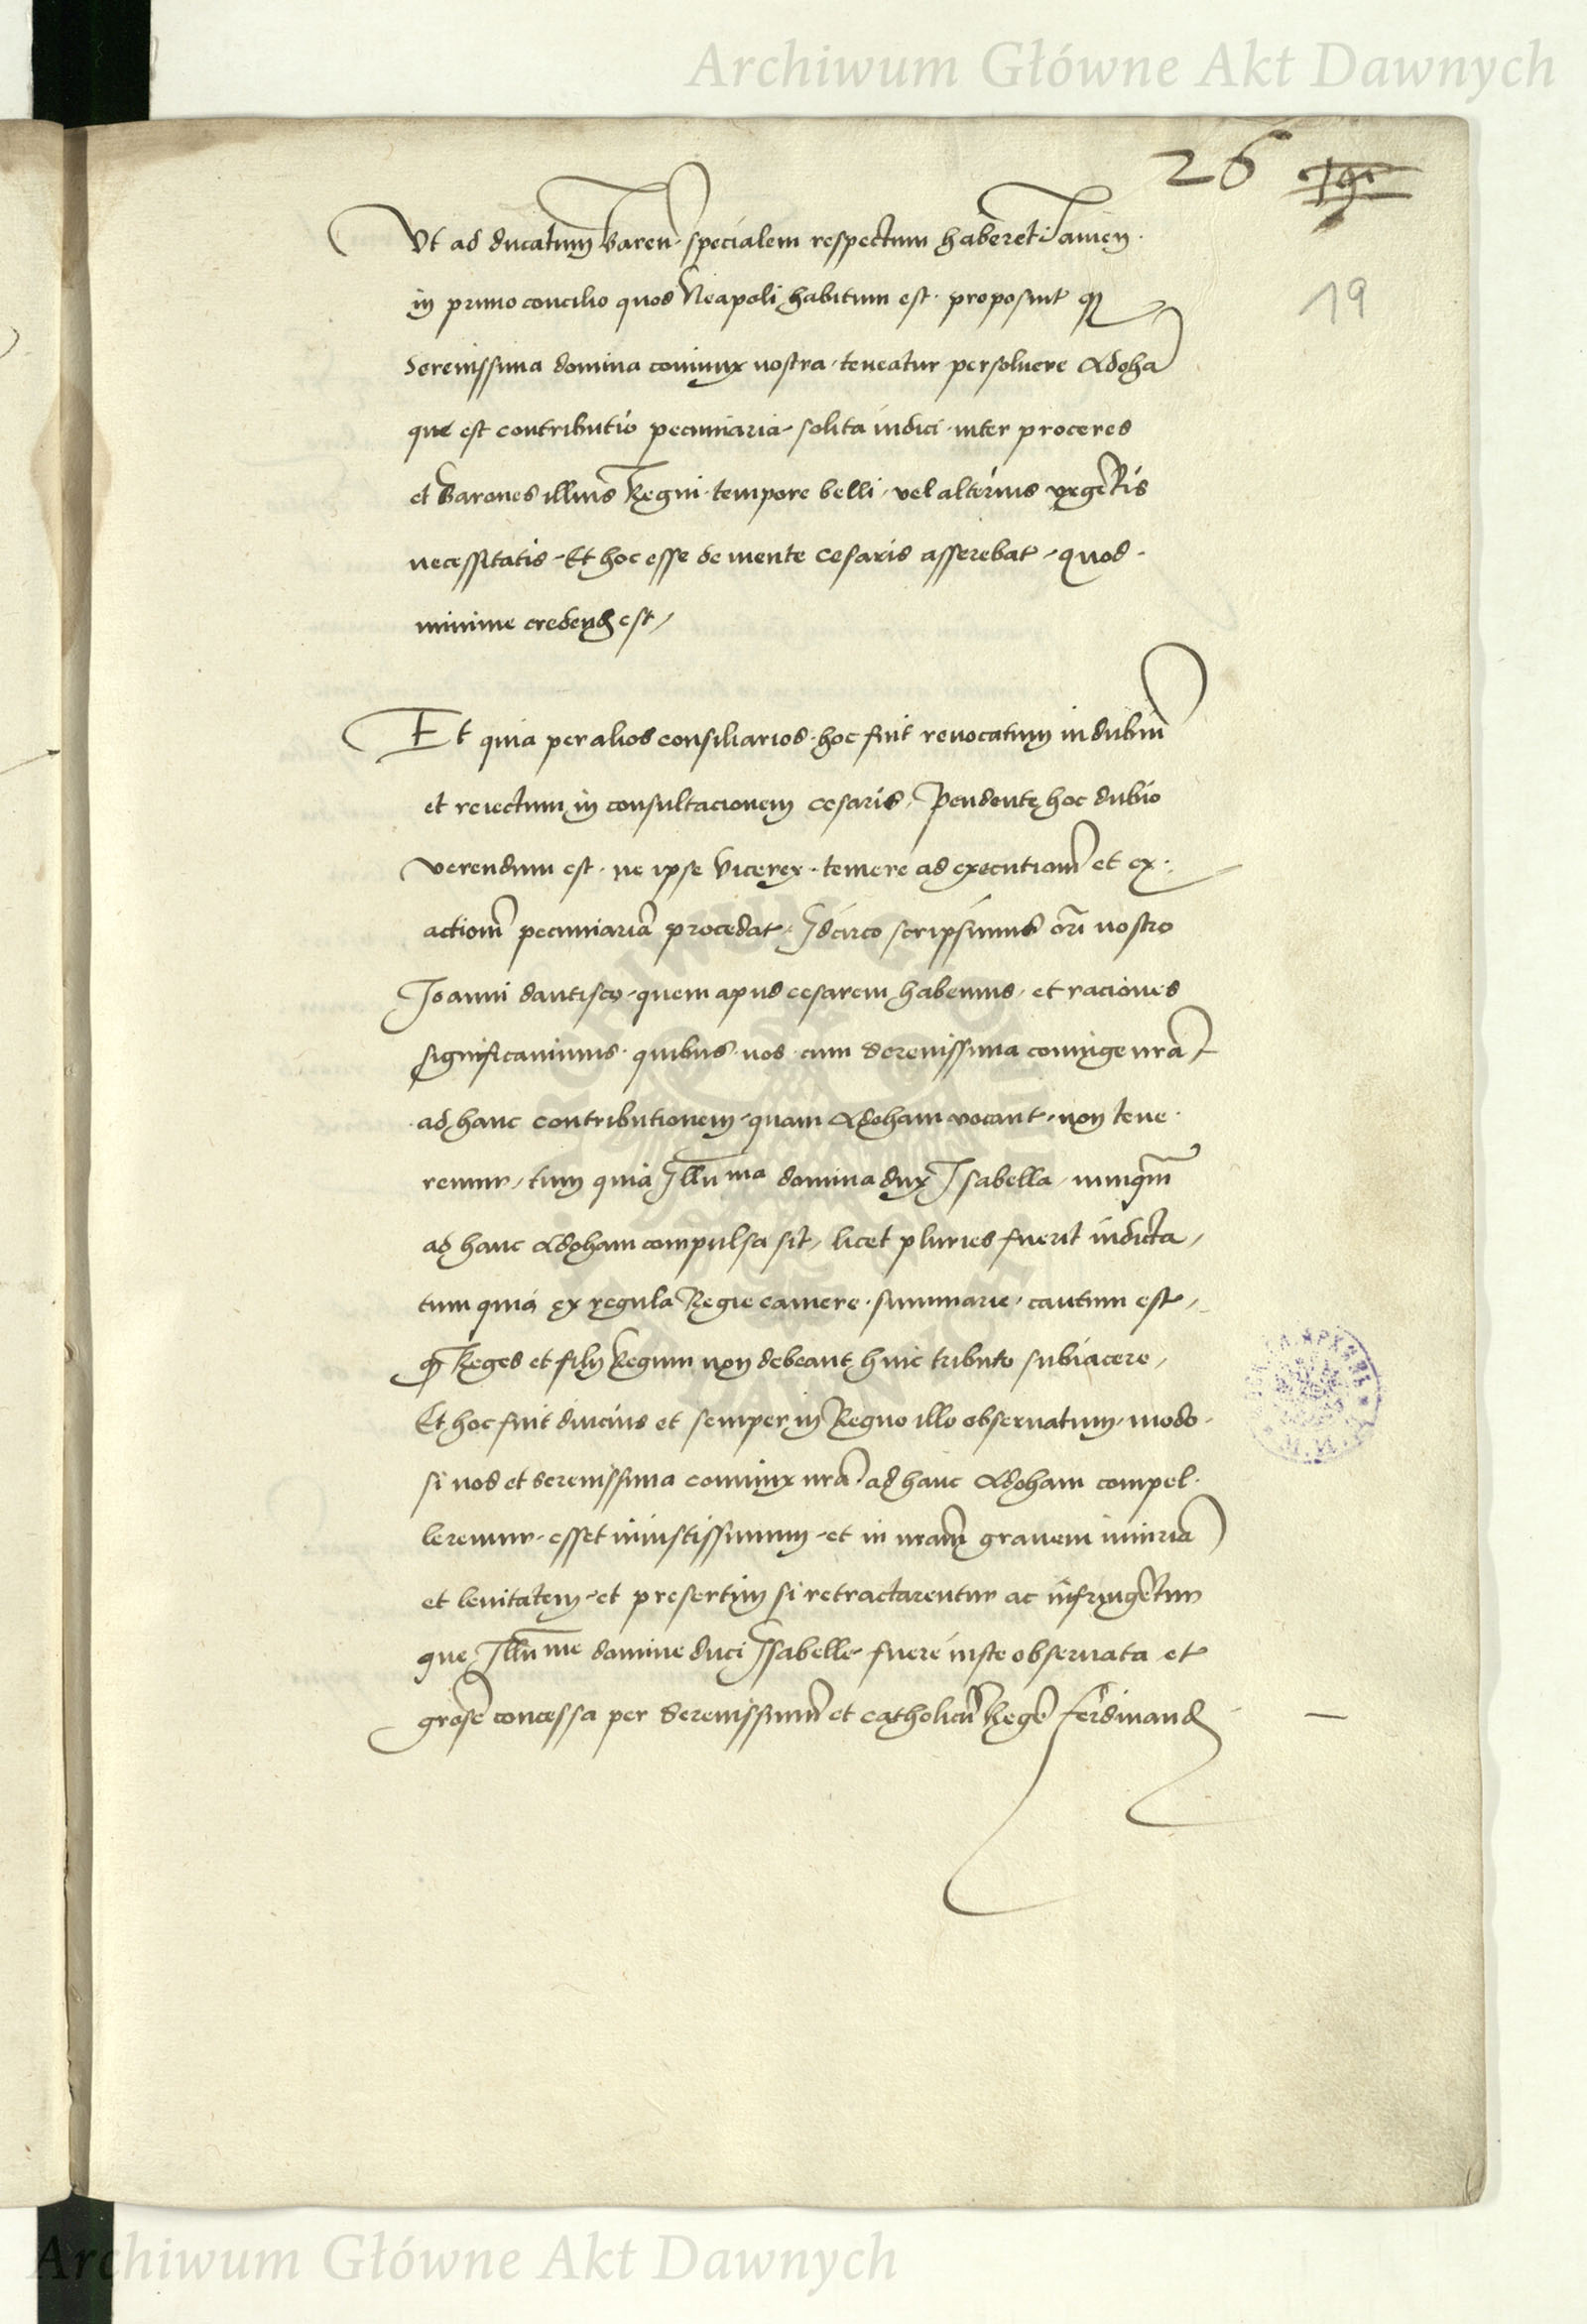 Archiwum Główne Akt Dawnych
26 19
19
Ut ad ducatum Baren. specialem respectum haberet. Tamen
in primo concilio quod Neapoli habitum est. proposuit qꝫ
Serenissima domina coniunx nostra. teneatur persoluere Adoha
que est contributio pecuniaria. solita indici. inter proceres
et Barones illius Regni. tempore belli. vel alterius vrgētis
necessitatis. Et hoc esse de mente Cesaris asserebat. quod.
minime credendū est/
Et quia per alios consiliarios. hoc fuit reuocatum in dubiū
et reiectum in consultacionem Cesaris. Pendente hoc dubio
verendum est. ne ipse Vicerex. temere ad executionē et ex.
actionē pecuniariā procedat. Idcirco scripsimus orī nostro
Joanni dantisco. quem apud cesarem habemus. et raciones
significauimus. quibus. nos. cum Serenissima coniuge nrā
ad hanc contributionem. quam Adoham vocant. non tene.
remur/ tum quia Illuma domina dux Isabella. nunqm̄
ad hanc Adoham compulsa sit/ licet pluries fuerit indicta/
tum quia ex regula Regie camere. summarie. cautum est/
qꝫ Reges et filij Regum non debeant huic tributo subiacere/
Et hoc fuit diucius et semper in Regno illo obseruatum. modo.
si nos et Serenissima coniunx nrā. ad hanc Adoham compel.
leremur. esset iniustissimum. et in nram̄ grauem iniuriā
et leuitatem. et presertim si retractarentur ac infringētur
que Illume domine duci Isabelle fuere iuste obseruata et
grose concessa per Serenissimū et catholicū Regē ferdinandū
Archiwum Główne Akt Dawnych